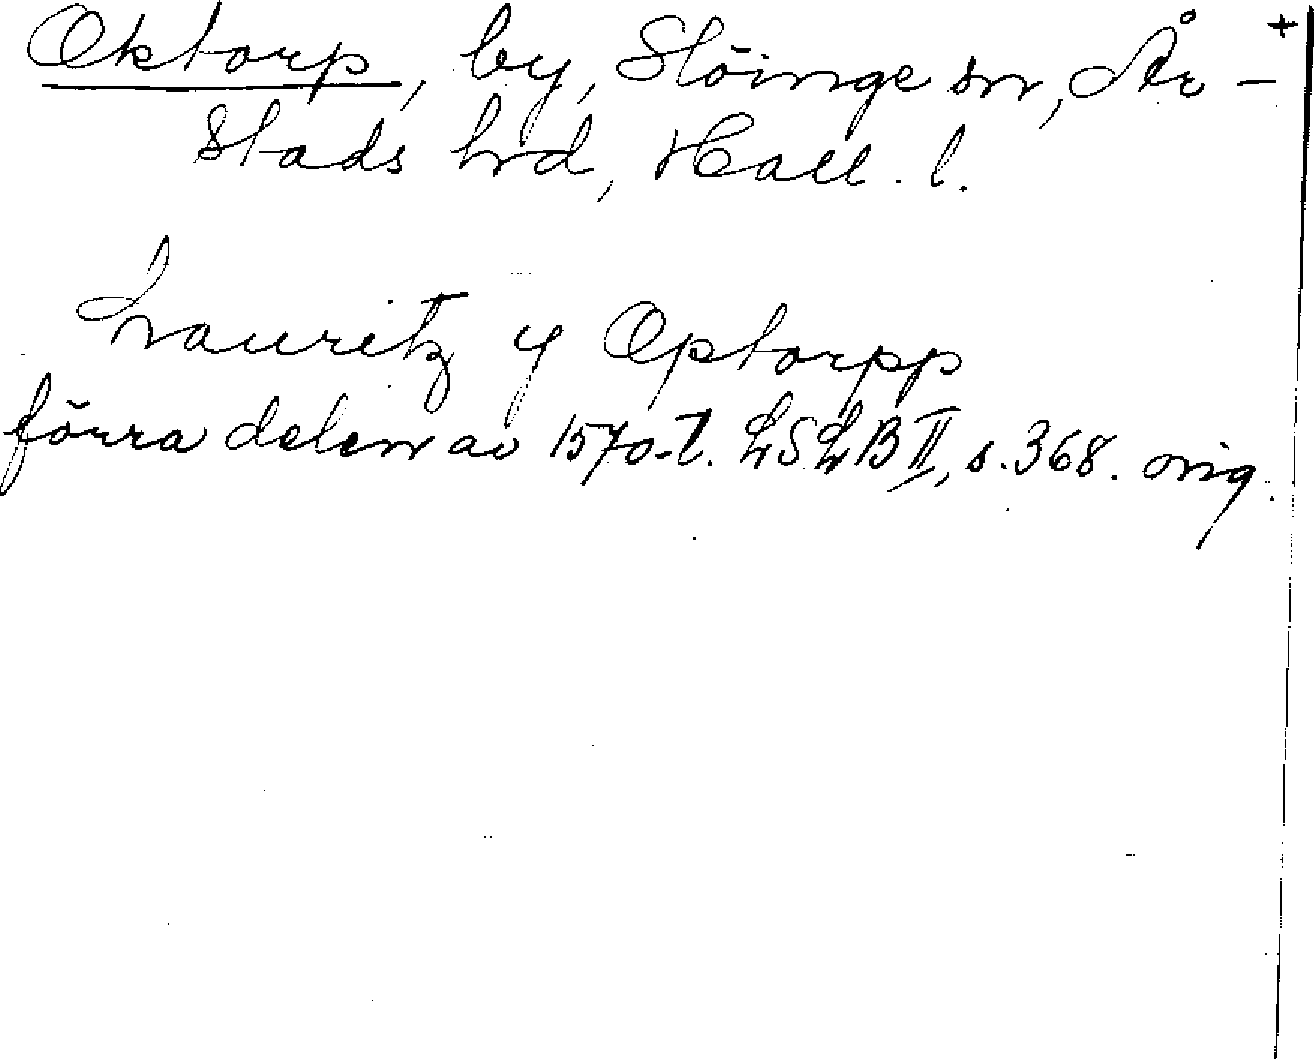 Oktorp, by, Slöinge sn, År- +
stads hrd, Hall. l.
Lauritz y Optorpp
förra delen av 1570-t. LSLB II, s. 368. orig.